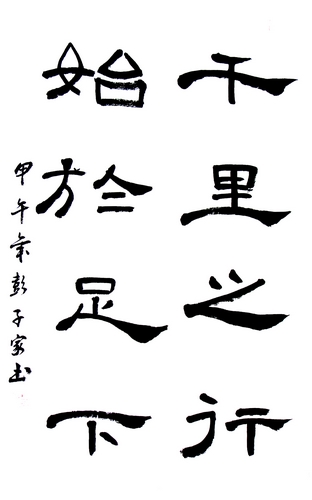 千里之行
始於足下
甲午年彭子家书